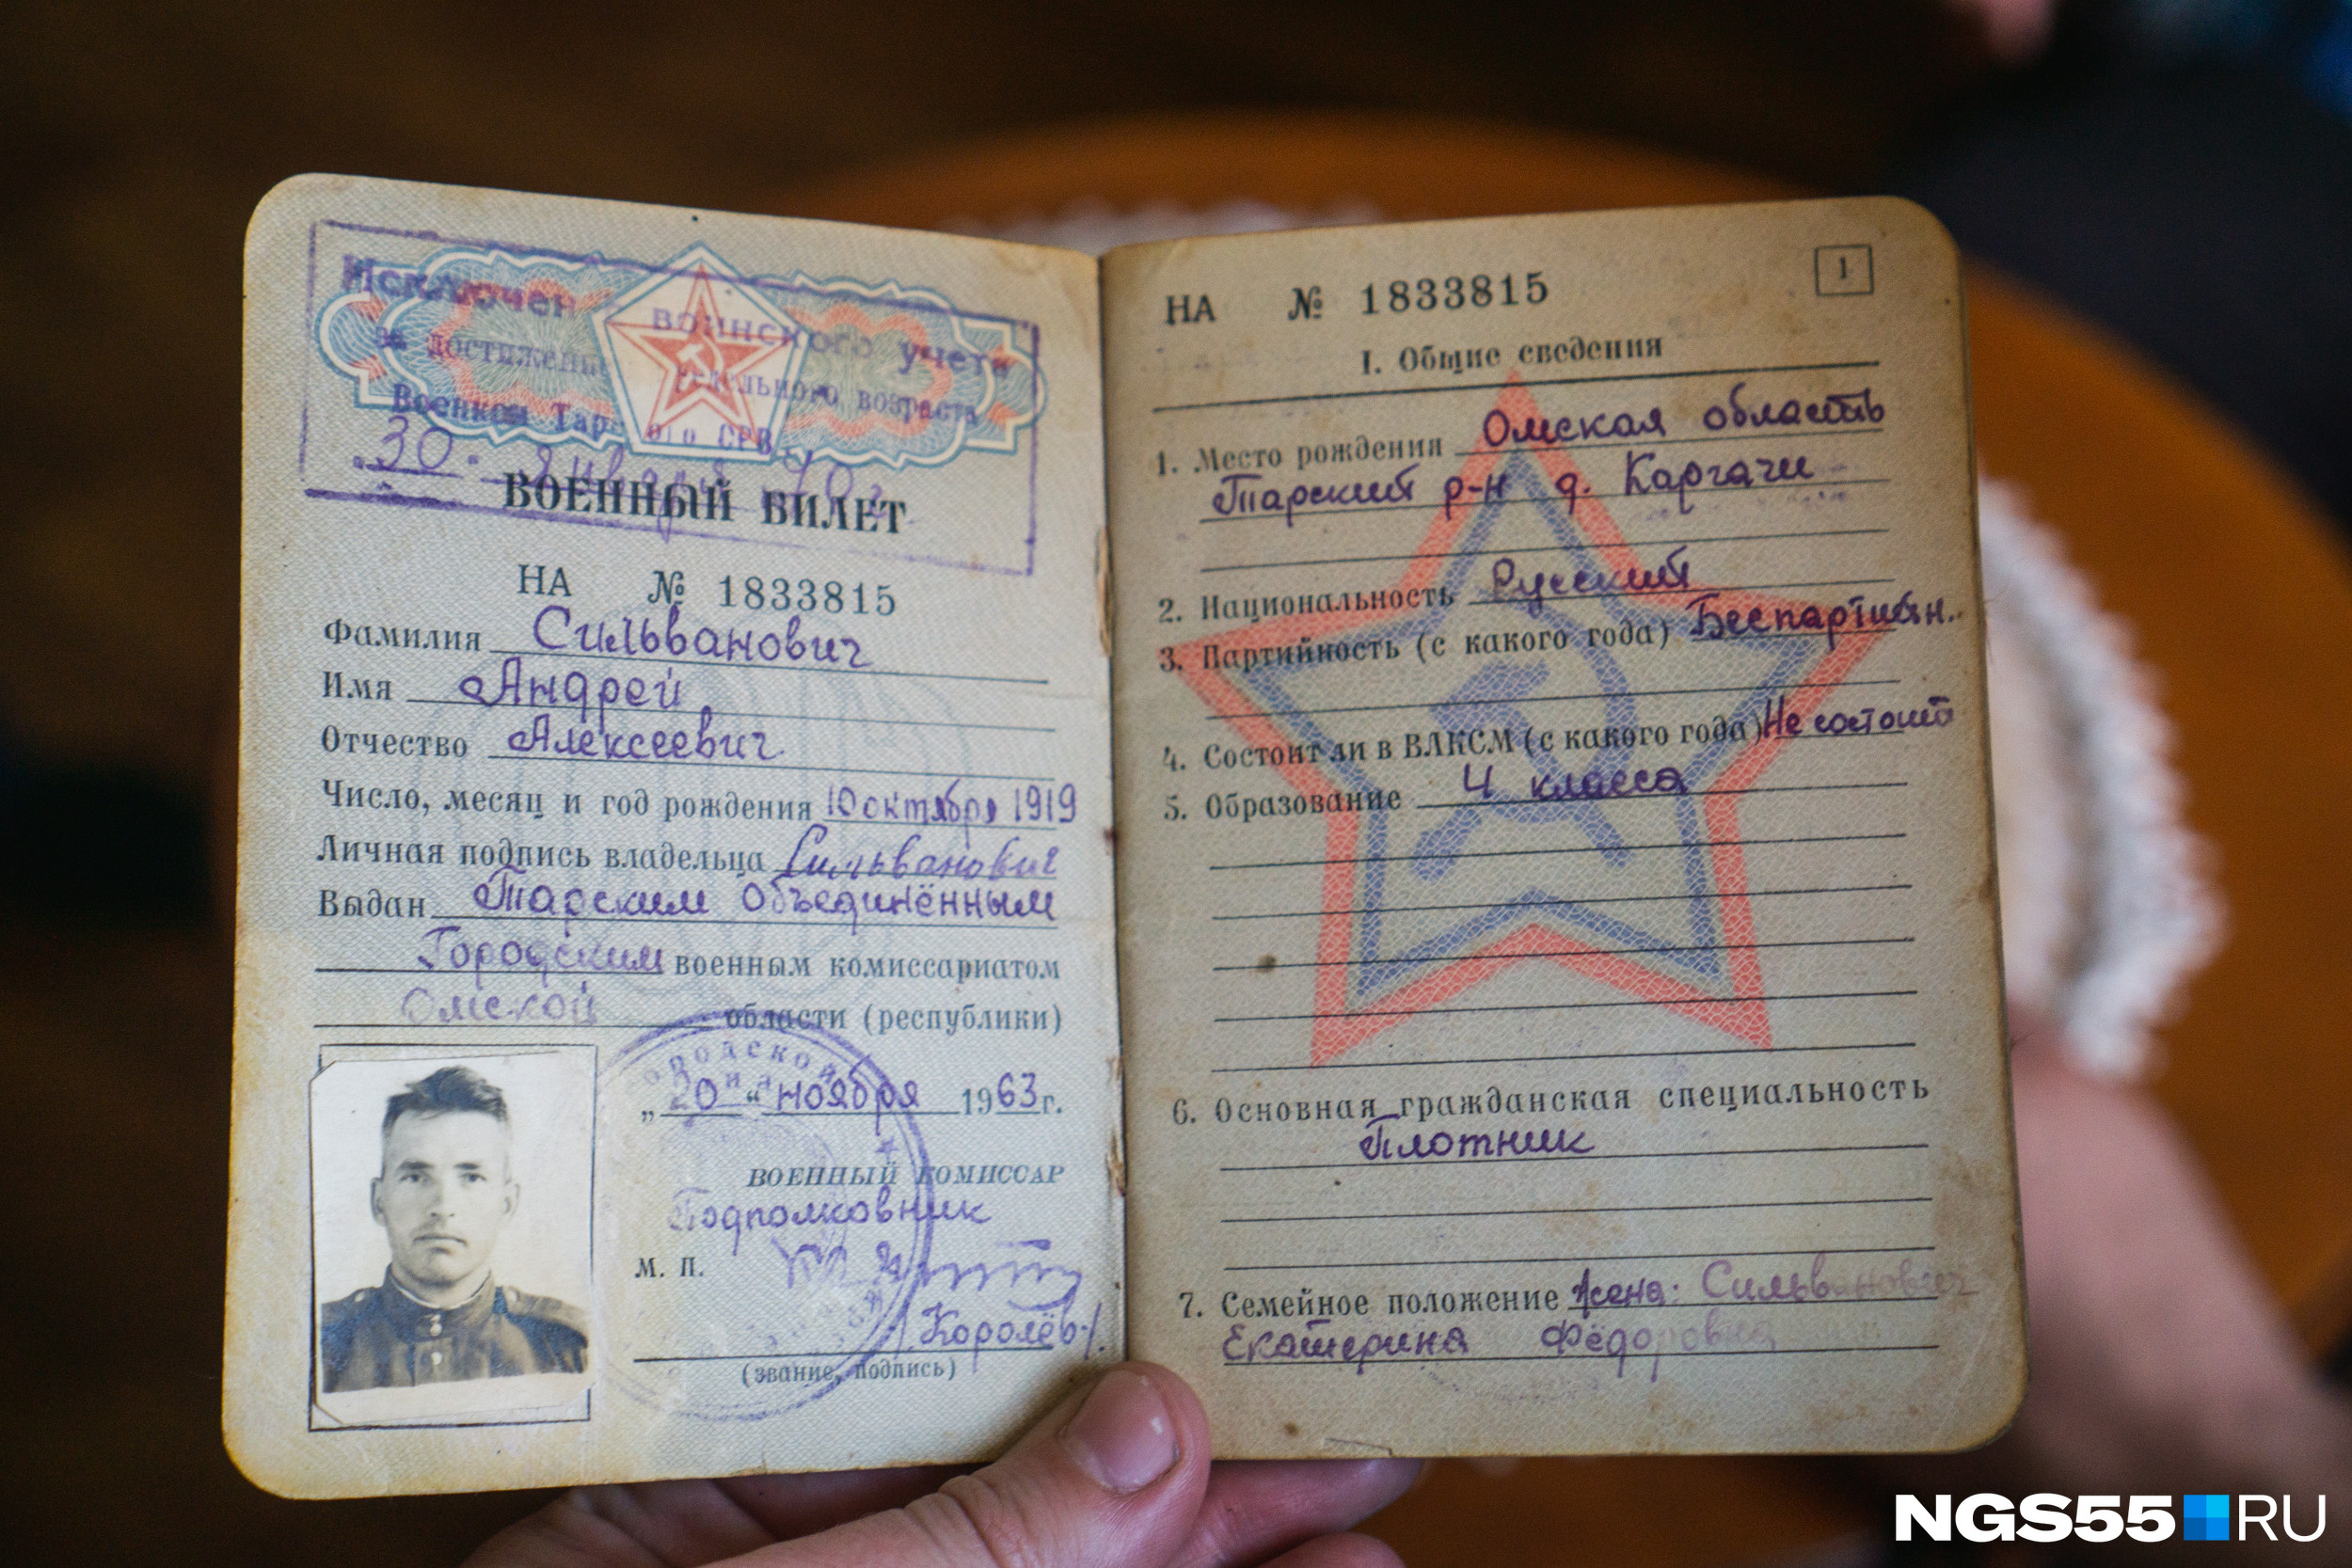 Исключен воинского учета
за достижение предельного возраста
Военком Тарского СРВ
30. января 70г
ВОЕННЫЙ БИЛЕТ
НА № 1833815
Фамилия Сильванович
Имя Андрей
Отчество Алексеевич
Число, месяц и год рождения 10 октября 1919
Личная подпись владельца Сильванович
Выдан Тарским Объединённым
Городским военным комиссариатом
Омской области (республики)
„20“ ноября 1963 г.
ВОЕННЫЙ КОМИССАР
Подполковник
М. П.
/Королёв/.
(звание, подпись)
1
НА № 1833815
I. Общие сведения
1. Место рождения Омская область
Тарский р-н д. Каргачи
2. Национальность Русский
3. Партийность (с какого года) Беспартийн.
4. Состоит ли в ВЛКСМ (с какого года) Не состоит
5. Образование 4 класса
6. Основная гражданская специальность
Плотник
7. Семейное положение жена: Сильванович
Екатерина Фёдоровна
NGS55 RU